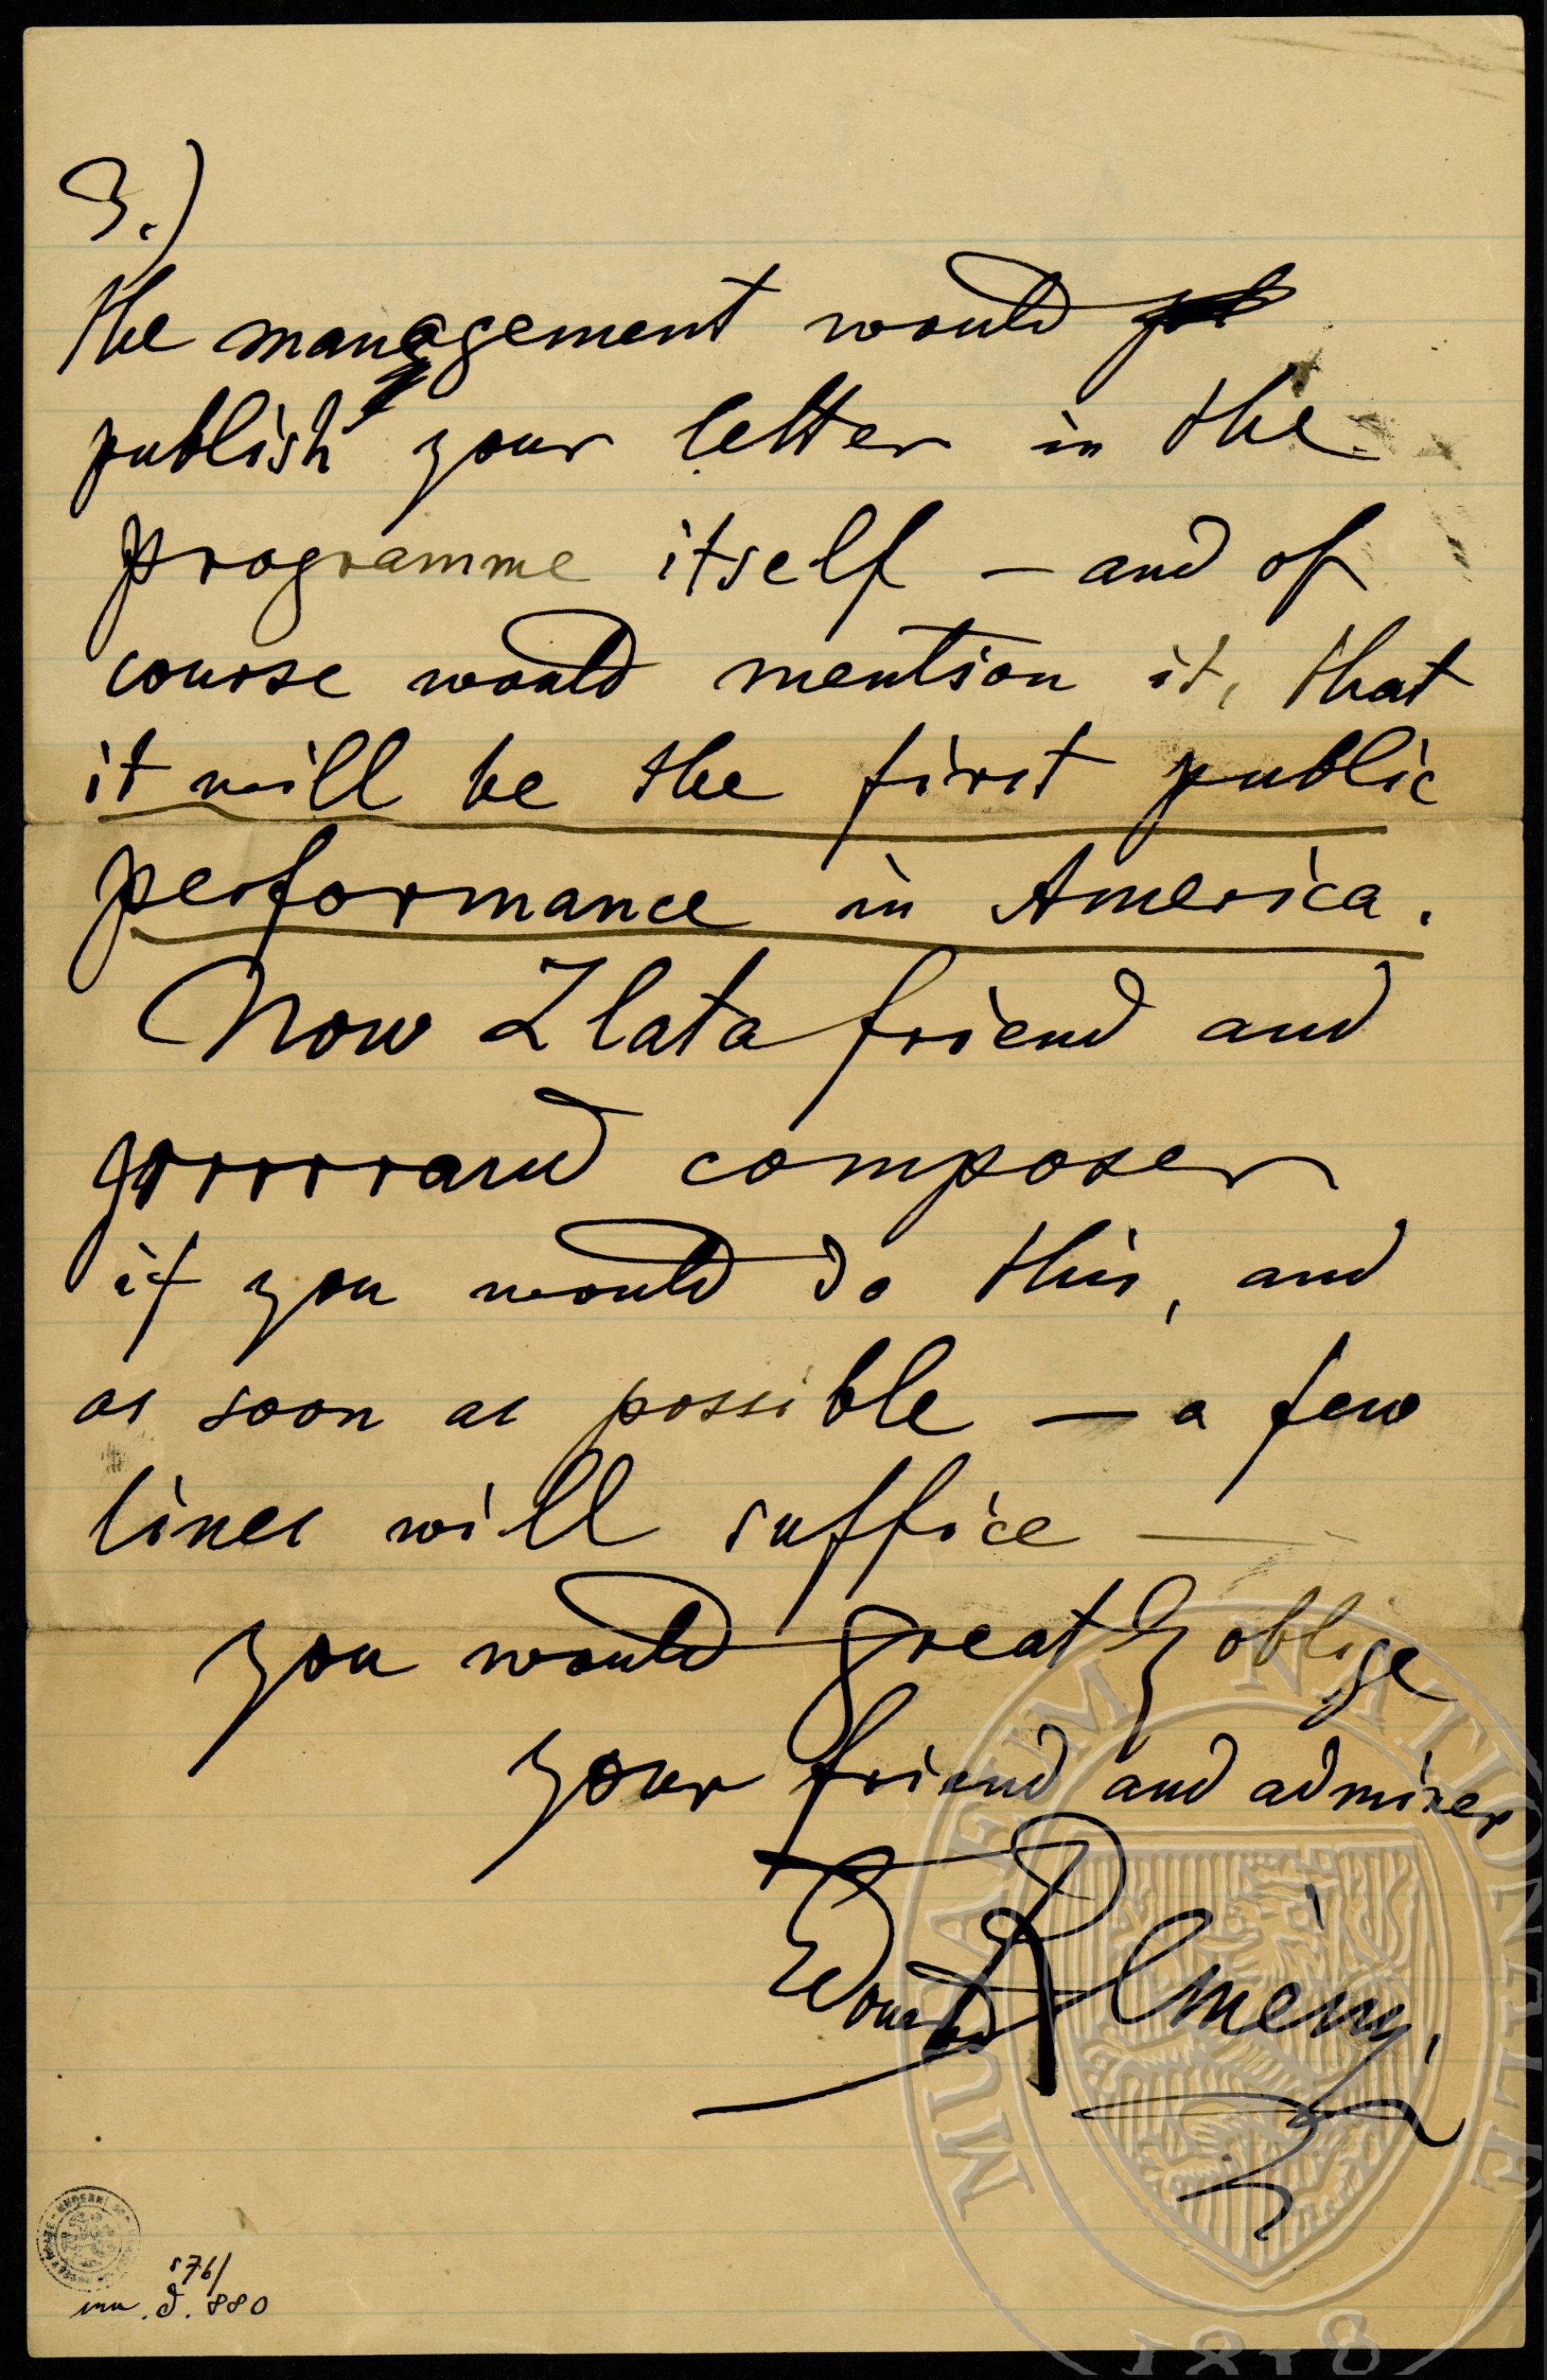 3.)
the management would
publish your letter in the
programme itself – and of
course would mention it, that
it will be the first public
performance in America.
Now Zlata friend and
grrrrrand composer
if you would do this, and
as soon as possible – a few
lines will suffice –
you would greatly oblige
your friend and admirer
MUSAEUM NATIONALE
1818
576/
inv. č. 880